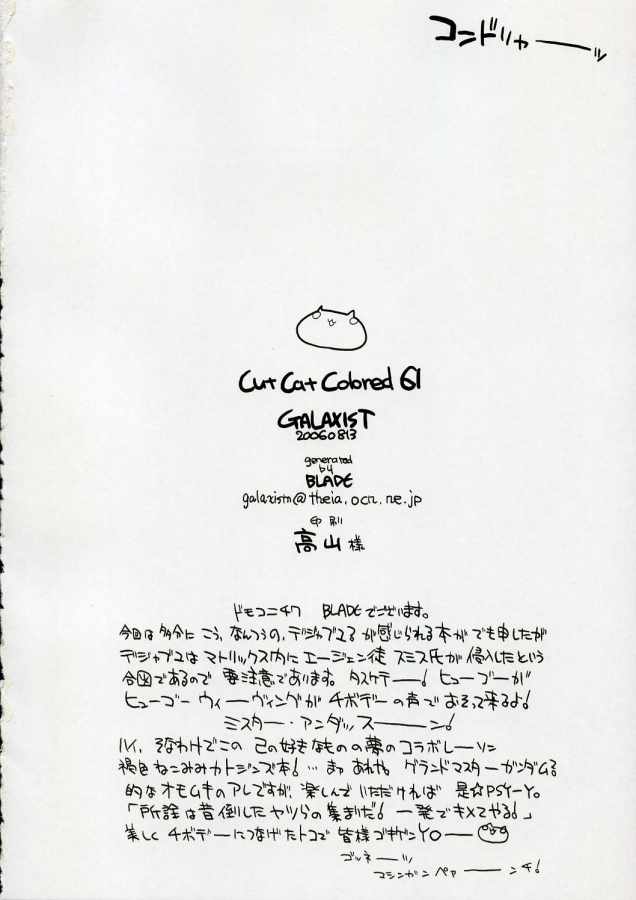 コンドリャーーッ
Cut Cat Colored 61
GALAXIST
20060813
generated
by
BLADE
galaxistn@theia.ocn.ne.jp
印刷
高山 様
ドモコニチワ BLADEでございます。
今回は多分に こう、なんつうの、デジャブュる が感じられる本が でも申したが
デジャブュは マトリックス内に エージェン徒 スミス氏が侵入したという
合図であるので 要注意であります。タスケテー! ヒューゴーが
ヒューゴー ウィーヴィングが チボデーの声で おそって来るよ!
ミスター・アンダッスーーン!
そなわけでこの 己の好きなものの夢のコラボレーソン
褐色ねこみみカトジンズ本!… まァ あれや。 グランドマスターガンダムる
的なオモムキのアレですが、楽しんでいただければ 是☆PSY-YO。
「所詮は昔倒したヤツらの集まりだ! 一発でキメてやる!」
美しく チボデーにつなげたトコで 皆様ゴキゲンYOー
ゴルネーッ
マシンガン パァーーンチ!